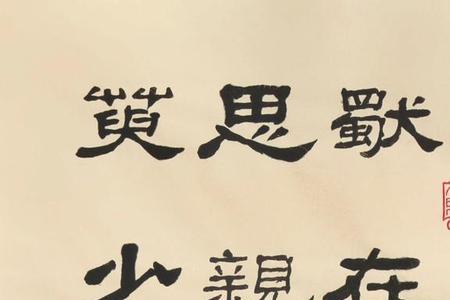 獨在
思親
萸少